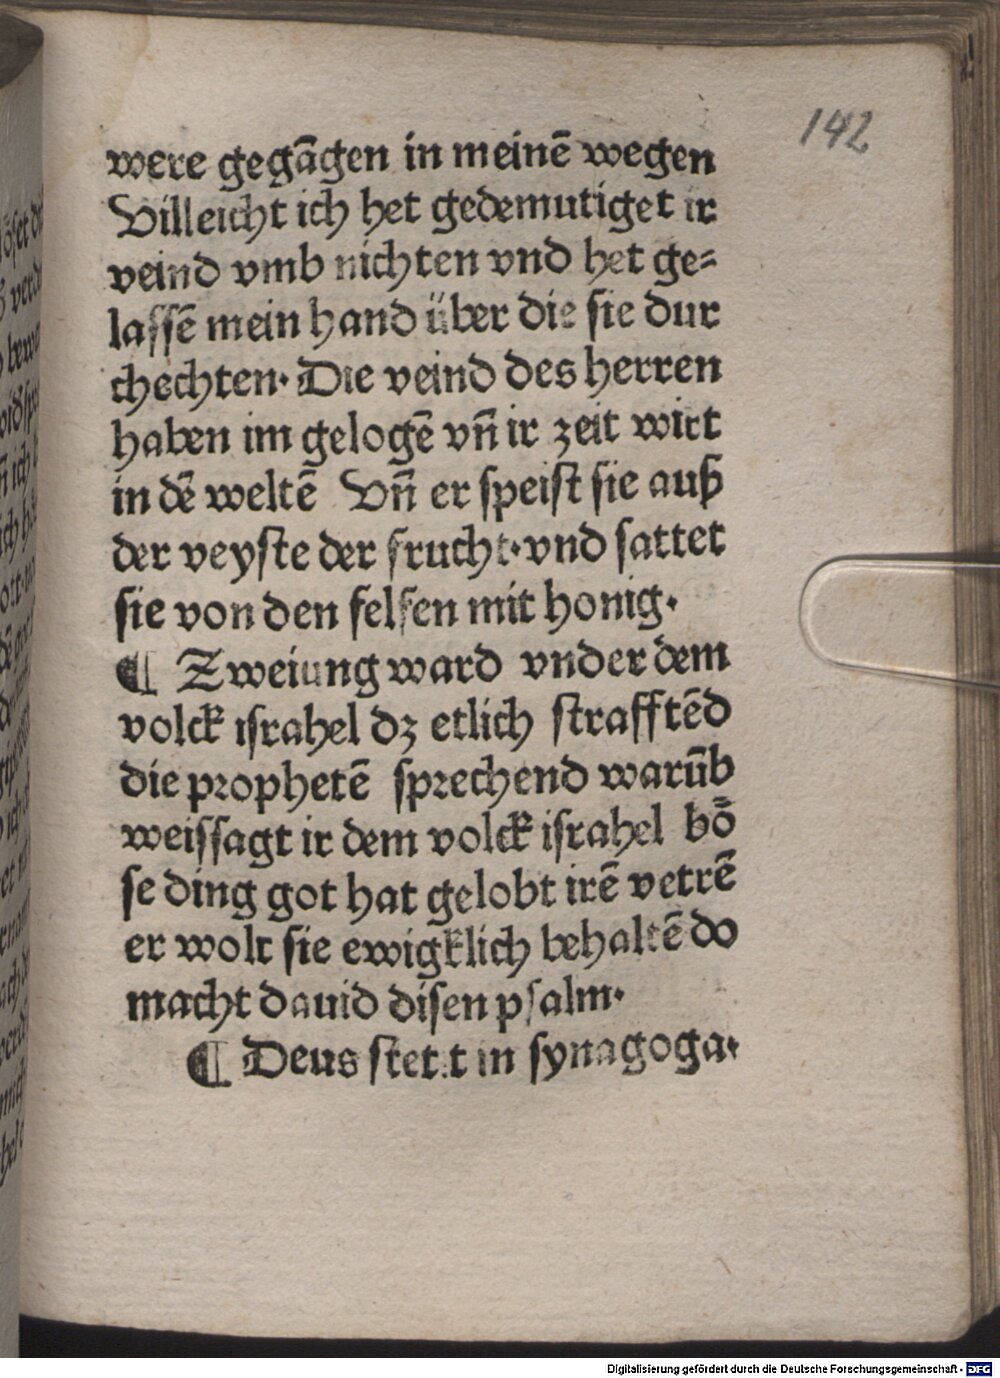 142
were gegãgen in meinẽ wegen
Villeicht ich het gedemutiget ir
veind vmb nichten vnd het ge⸗
lassẽ mein hand über die sie dur
chechten· Die veind des herren
haben im gelogẽ vñ ir zeit wirt
in dẽ weltẽ Vñ er speist sie auß
der veyste der frucht·vnd sattet
sie von den felsen mit honig·
¶ Zweiung ward vnder dem
volck israhel dz etlich strafftẽd
die prophetẽ sprechend warũb
weissagt ir dem volck israhel bö⸗
se ding got hat gelobt irẽ vetrẽ
er wolt sie ewigklich behaltẽ do
macht dauid disen psalm·
¶ Deus stetit in synagoga·
Digitalisierung gefördert durch die Deutsche Forschungsgemeinschaft - DFG